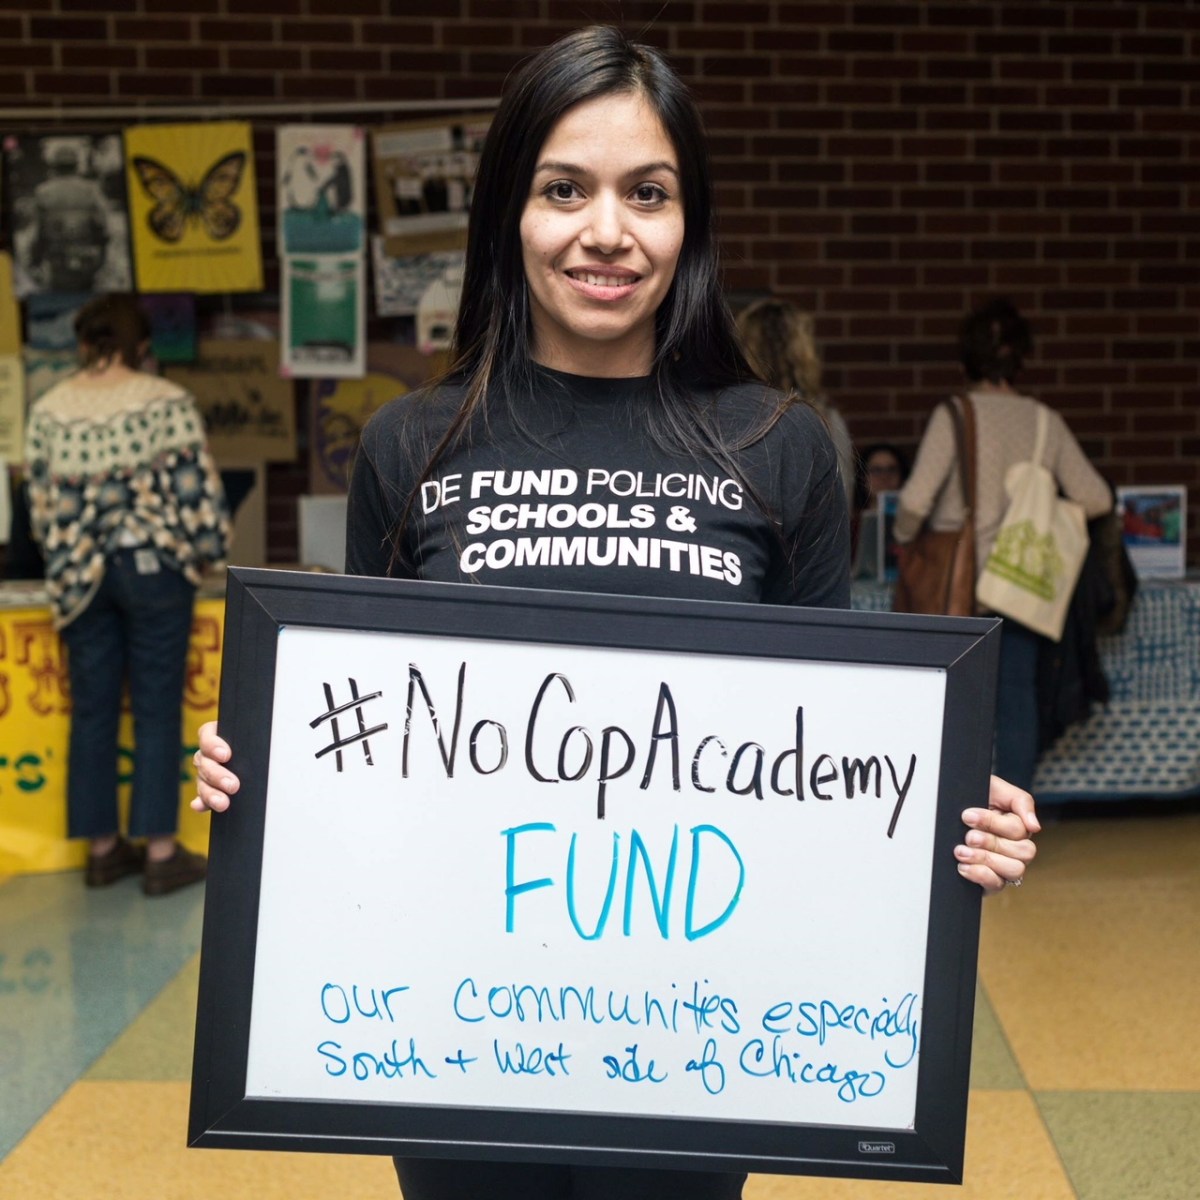 DE FUND POLICING
SCHOOLS &
COMMUNITIES
#NoCopAcademy
FUND
our communities especially
South + West side of Chicago
Quartet